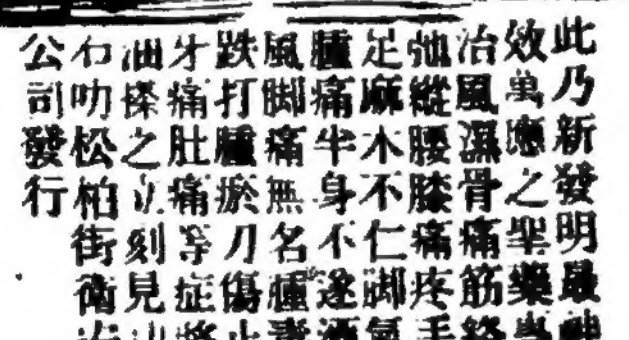 此乃新發明最
效萬應之聖藥專
治風濕骨痛筋絡
弛縱腰膝痛疼手
足麻木不仁脚氣
腫痛半身不遂酒
風脚痛無名腫毒
跌打腫瘀刀傷止
牙痛肚痛等症將
油搽之立刻見
石叻松柏街衛
公司發行